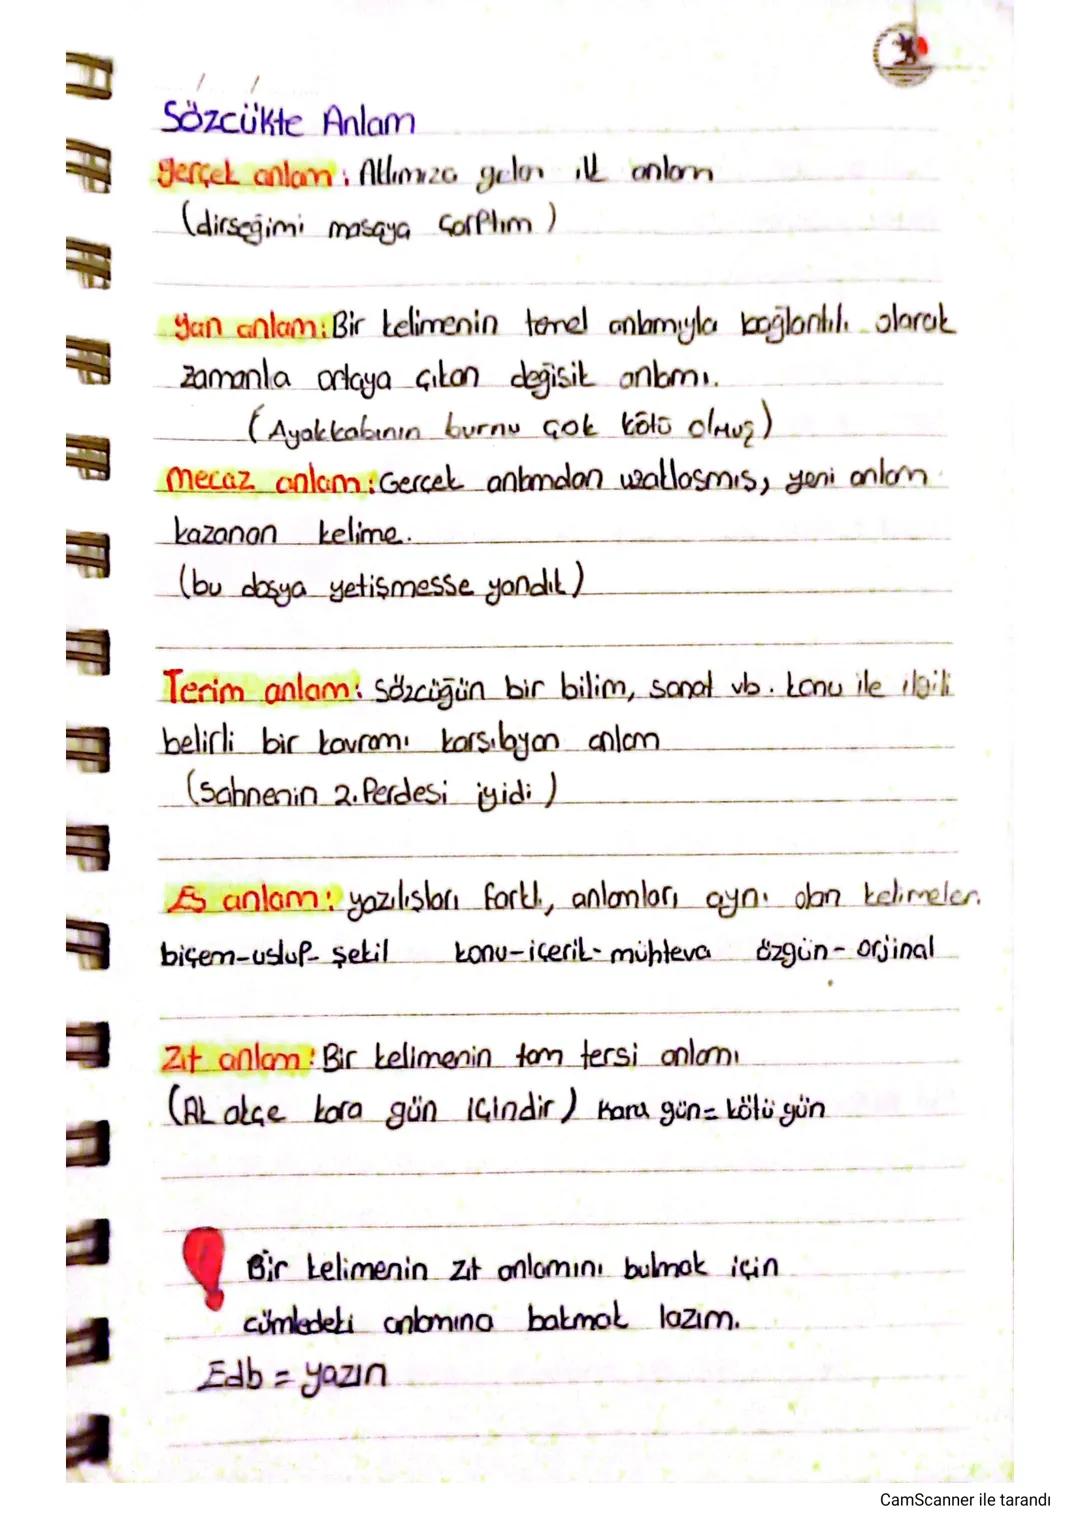 Sözcükte Anlam
gerçek anlam: Aklımıza gelen ilk anlam
(dirseğimi masaya çarptım)
yan anlam: Bir kelimenin temel anlamıyla bağlantılı olarak
zamanla ortaya çıkan değişik anlamı.
(Ayakkabının burnu çok kötü olmuş)
Mecaz anlam: Gerçek anlamdan uzaklaşmış, yeni anlam
kazanan kelime.
(bu dosya yetişmesse yandık)
Terim anlam: Sözcüğün bir bilim, sanat vb. konu ile ilgili
belirli bir kavramı karşılayan anlam
(Sahnenin 2. Perdesi iyidi)
Eş anlam: yazılışları farklı, anlamları aynı olan kelimeler.
biçem-uslup- şekil konu-içerik-muhteva özgün- orjinal
Zıt anlam: Bir kelimenin tam tersi anlamı
(Ak akçe kara gün içindir) Kara gün= kötü gün
Bir kelimenin zıt anlamını bulmak için
cümledeki anlamına bakmak lazım.
Edb = yazın
CamScanner ile tarandı